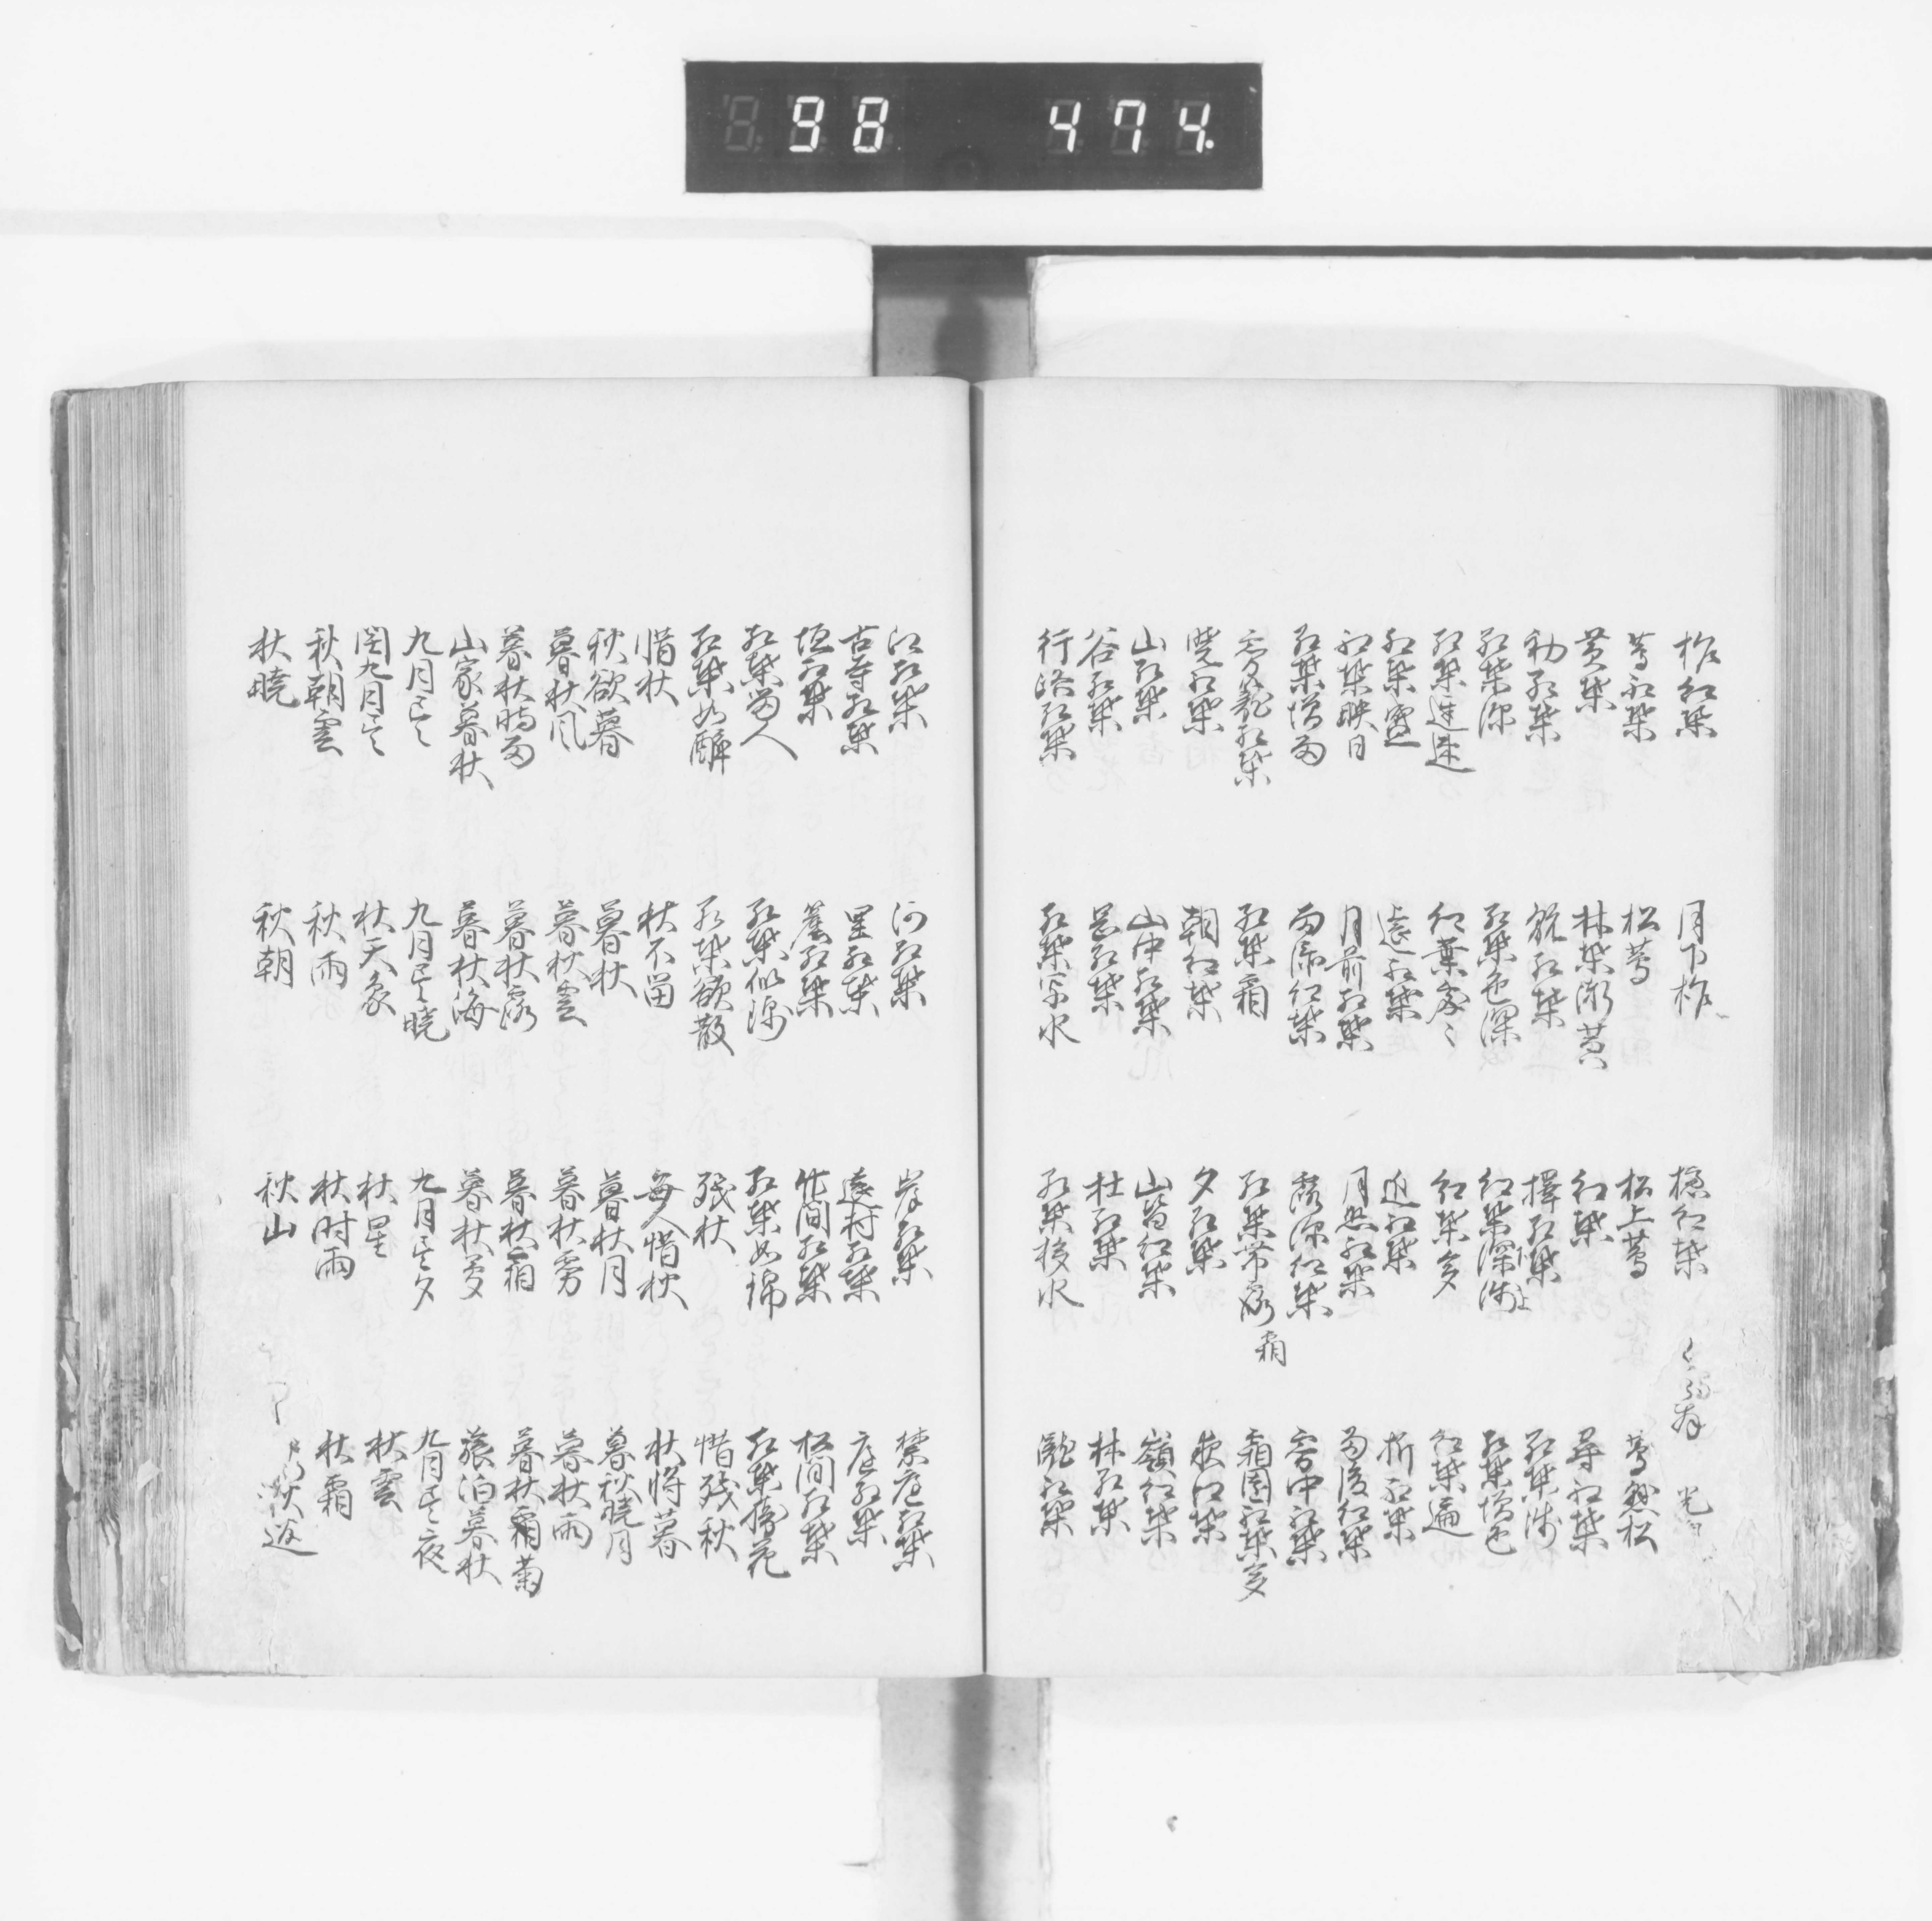 98 474.
柞紅葉 月下柞 櫨紅葉
蔦紅葉 松蔦 松上蔦 蔦懸松
黄葉 林葉漸黄 紅葉 尋紅葉
初紅葉 翫紅葉 擇紅葉 紅葉浅
紅葉深 紅葉色深 紅葉深浅 紅葉増色
紅葉遅速 紅葉處〻 紅葉多 紅葉遍
紅葉盛 遠紅葉 近紅葉 折紅葉
紅葉映日 月前紅葉 月照紅葉 雨後紅葉
紅葉増雨 雨添紅葉 露深紅葉 雺中紅葉
雺籠紅葉 紅葉霜 紅葉帯露霜 霜園紅葉多
暁紅葉 朝紅葉 夕紅葉 夜紅葉
山紅葉 山中紅葉 山皆紅葉 嶺紅葉
谷紅葉 岡紅葉 杜紅葉 林紅葉
行路紅葉 紅葉写水 紅葉移水 瀧紅葉
江紅葉 河紅葉 岸紅葉 禁庭紅葉
古寺紅葉 里紅葉 遠村紅葉 庭紅葉
垣紅葉 籬紅葉 竹間紅葉 松間紅葉
紅葉留人 紅葉似錦 紅葉如錦 紅葉勝花
紅葉如酔 紅葉欲散 残秋 惜残秋
惜秋 秋不留 毎人惜秋 秋将暮
秋欲暮 暮秋 暮秋月 暮秋暁月
暮秋風 暮秋雲 暮秋雺 暮秋雨
暮秋時雨 暮秋露 暮秋霜 暮秋霜菊
山家暮秋 暮秋海 暮秋雺 旅泊暮秋
九月尽 九月尽暁 九月尽夕 九月尽夜
閏九月尽 秋天象 秋星 秋雲
秋朝雲 秋雨 秋時雨 秋霜
秋暁 秋朝 秋山